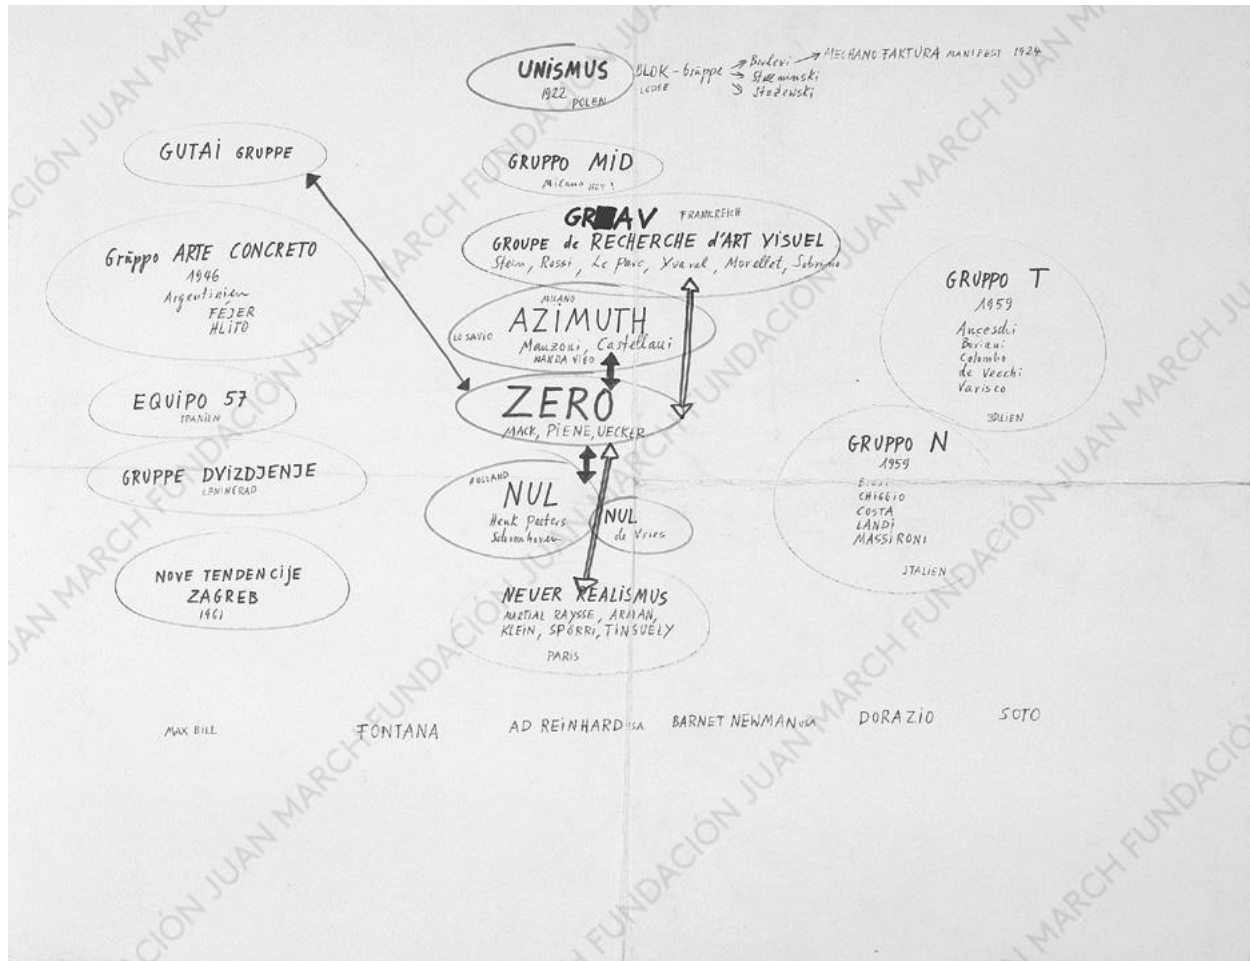 UNISMUS
1922 POLEN
BLOK - Gruppe
LODZ
Berlevi → MECHANO FAKTURA MANIFEST 1924
Streminski
Stażewski
GUTAI GRUPPE
GRUPPO MID
Milano
GRAV FRANKREICH
GROUPE de RECHERCHE d'ART VISUEL
Stein, Rossi, Le Parc, Yvaral, Morellet, Sobrino
Gruppo ARTE CONCRETO
1946
Argentinien
FEJER
HLITO
MILANO
AZIMUTH
LO SAVIO
Manzoni, Castellani
NANDA VIGO
GRUPPO T
1959
Anceschi
Boriani
Colombo
de Vecchi
Varisco
ITALIEN
EQUIPO 57
SPANIEN
ZERO
MACK, PIENE, UECKER
GRUPPO N
1959
Biasi
CHIGGIO
COSTA
LANDI
MASSIRONI
ITALIEN
GRUPPE DVIZDJENJE
LENINGRAD
HOLLAND
NUL
Henk Peeters
Schoonhoven
NUL
de Vries
NOVE TENDENCIJE
ZAGREB
1961
NEUER REALISMUS
MARTIAL RAYSSE, ARMAN,
KLEIN, SPÖRRI, TINGUELY
PARIS
MAX BILL
FONTANA
AD REINHARD USA
BARNET NEWMAN USA
DORAZIO
SOTO
FUNDACIÓN JUAN MARCH